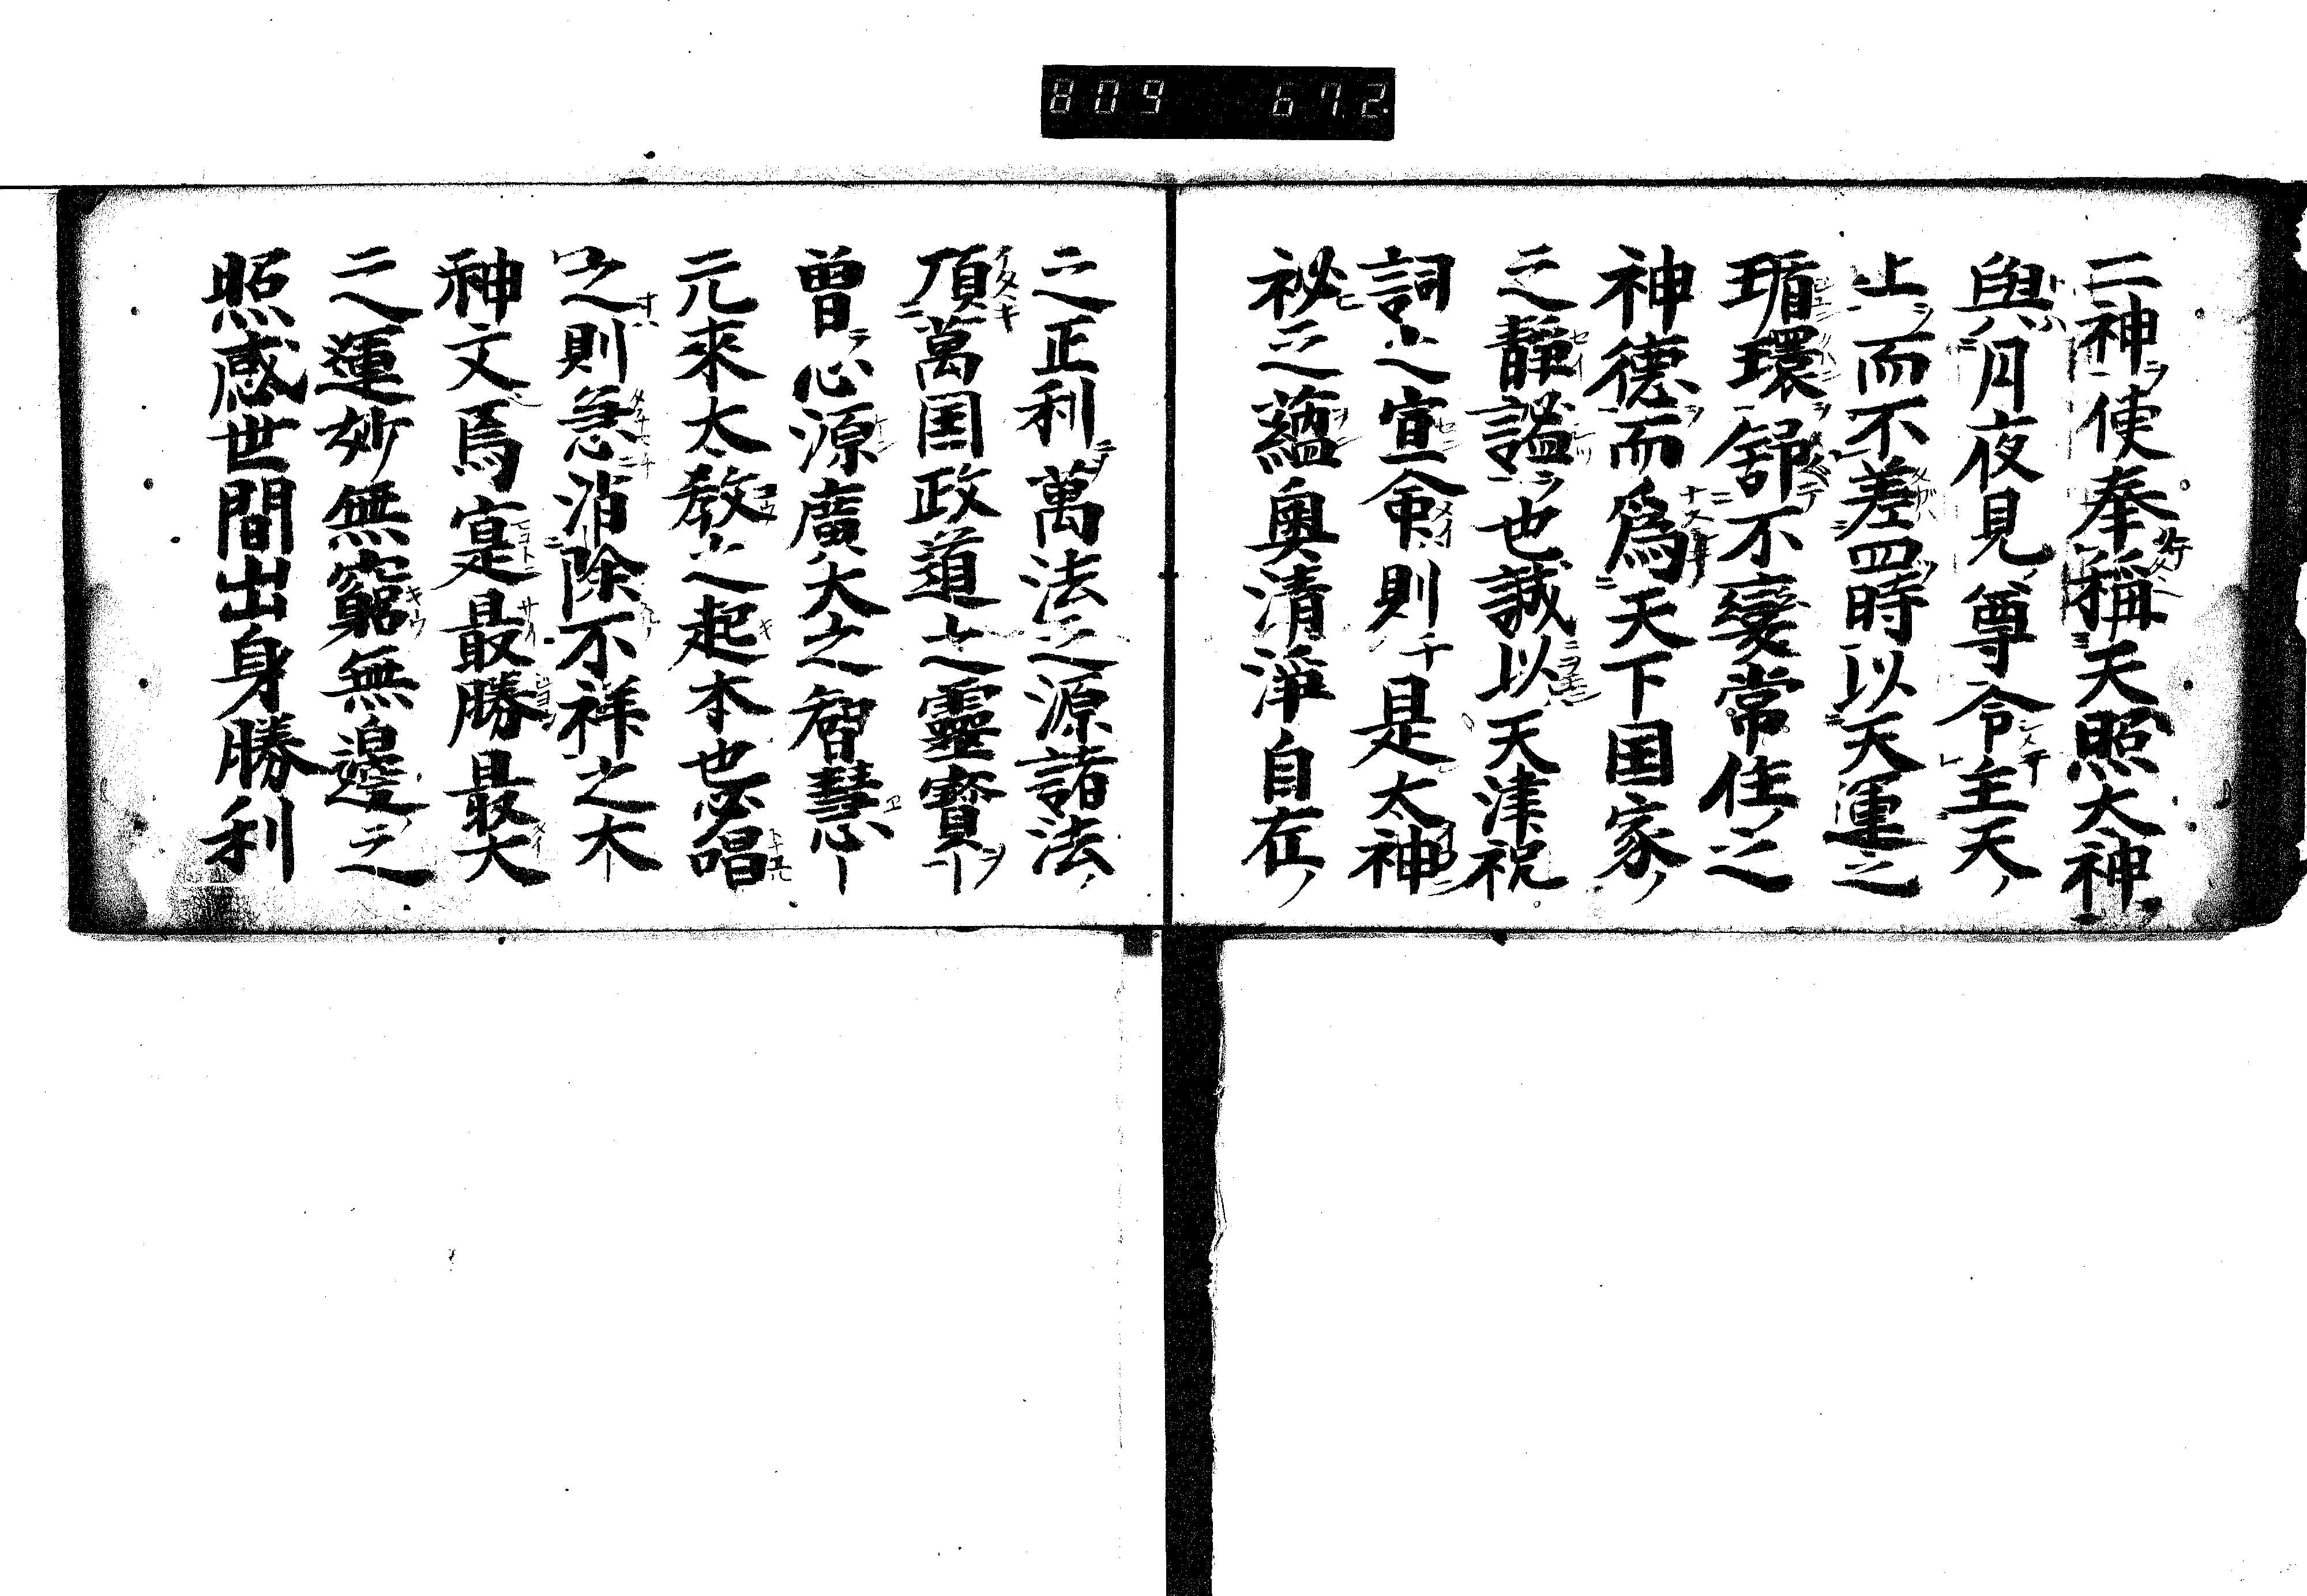 809 672
二神使奉稱天照大神
與月夜見尊令主天
止而不差四時以天運之
循環舒不變常住之
神德而為天下国家
之靜謐也誠以天津祝
詞之宣命則千是太神
祕之蘊奥清淨自在
之正利萬法之源諸法
頂萬国政道之靈寳
曽心源廣大之智慧
元來太教之起本也必唱
之則急消除不祥之大
神文焉寔最勝最大
之運妙無窮無邊之
照感世間出身勝利